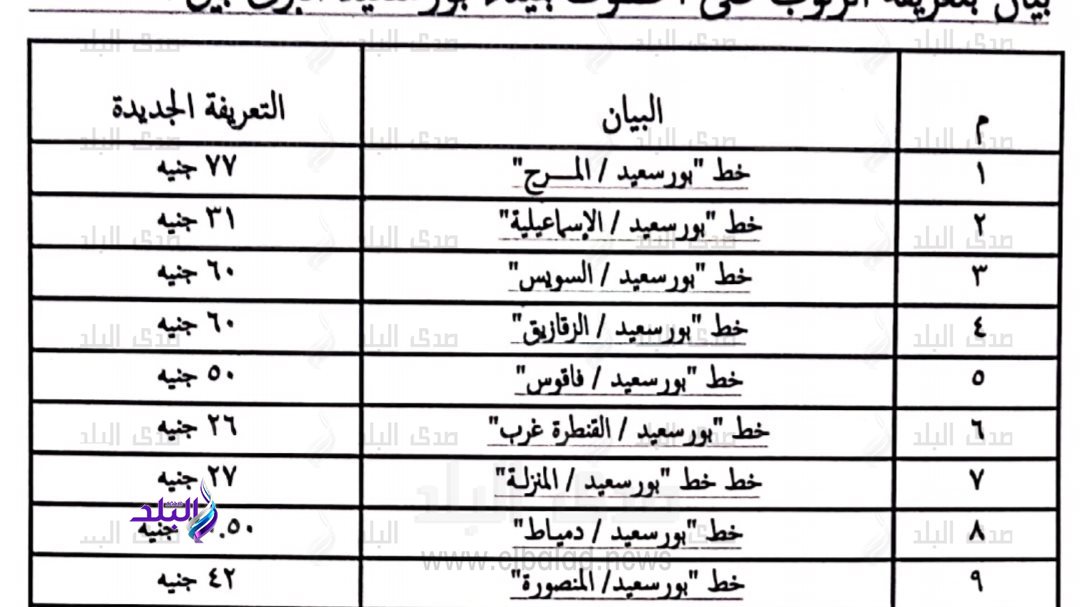 م البيان التعريفة الجديدة
١ خط "بورسعيد / المـــرج" ٧٧ جنيه
٢ خط "بورسعيد / الإسماعيلية" ٣١ جنيه
٣ خط "بورسعيد / السويس" ٦٠ جنيه
٤ خط "بورسعيد / الزقازيق" ٦٠ جنيه
٥ خط "بورسعيد / فاقوس" ٥٠ جنيه
٦ خط "بورسعيد / القنطرة غرب" ٢٦ جنيه
٧ خط خط "بورسعيد / المنزلة" ٢٧ جنيه
٨ خط "بورسعيد / دمياط" جنيه
٩ خط "بورسعيد/ المنصورة" ٤٢ جنيه
صدى البلد
البلد
www.elbalad.news